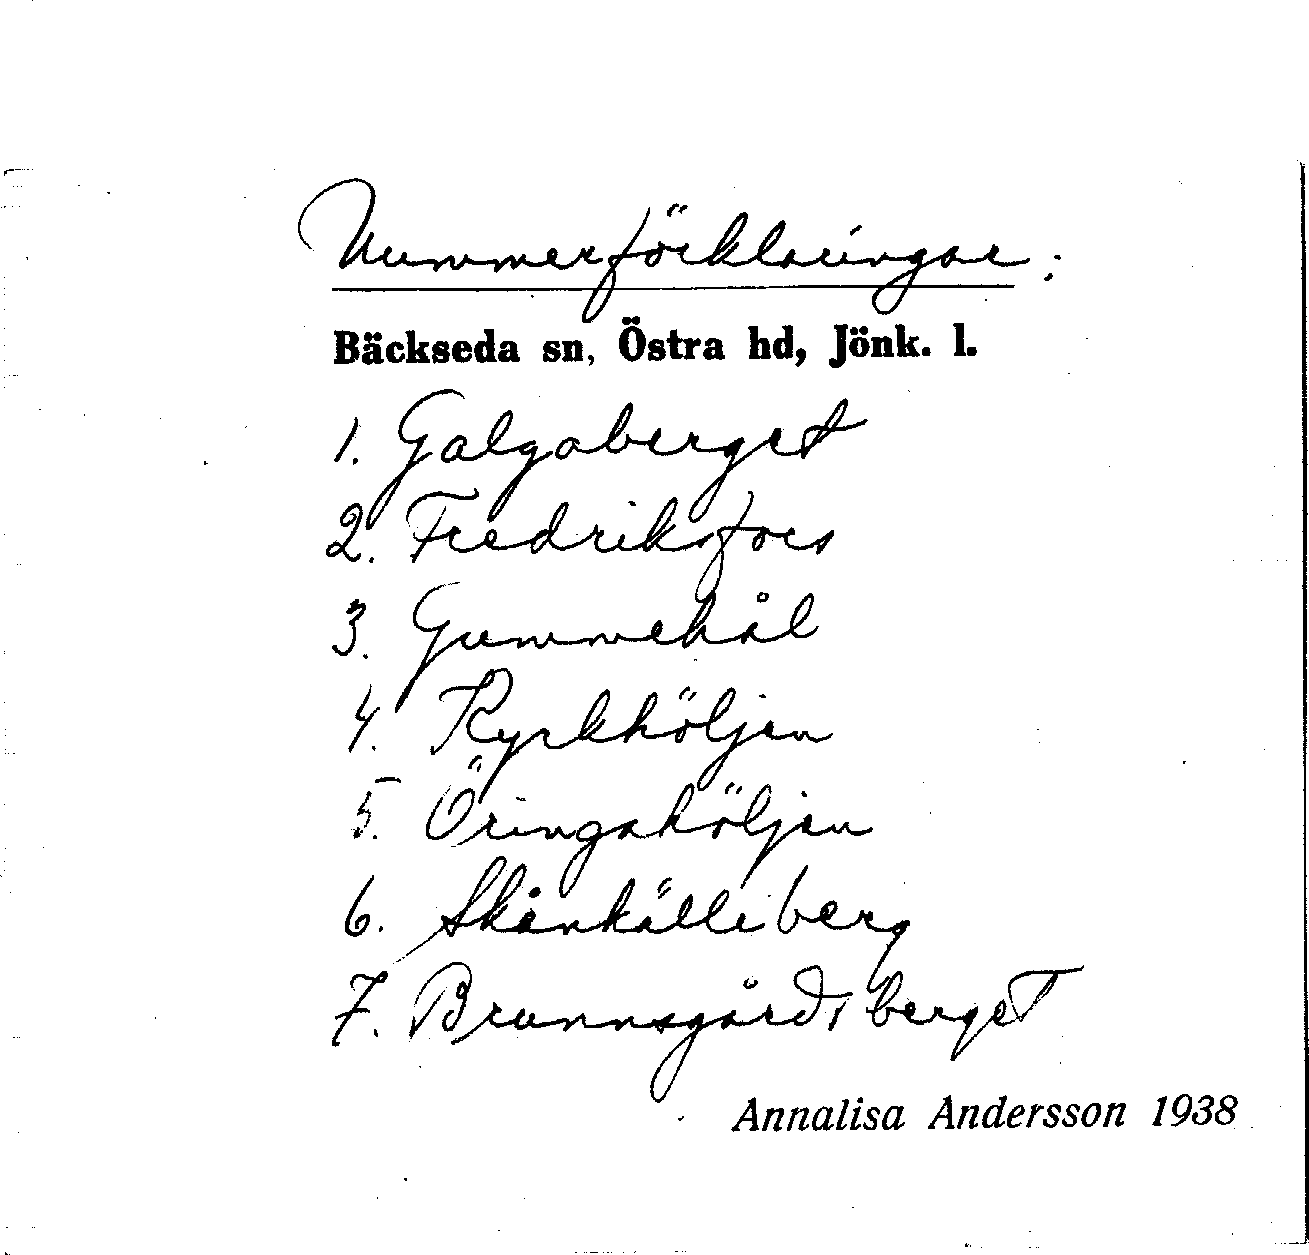 Nummerförklaringar:
Bäckseda sn, Östra hd, Jönk. l.
1. Galgaberget
2. Fredriksfors
3. Gummehål
4. Kyrkhöljen
5. Öringahöljen
6. Skånkälleberg
7. Brunnsgårdsberget
Annalisa Andersson 1938